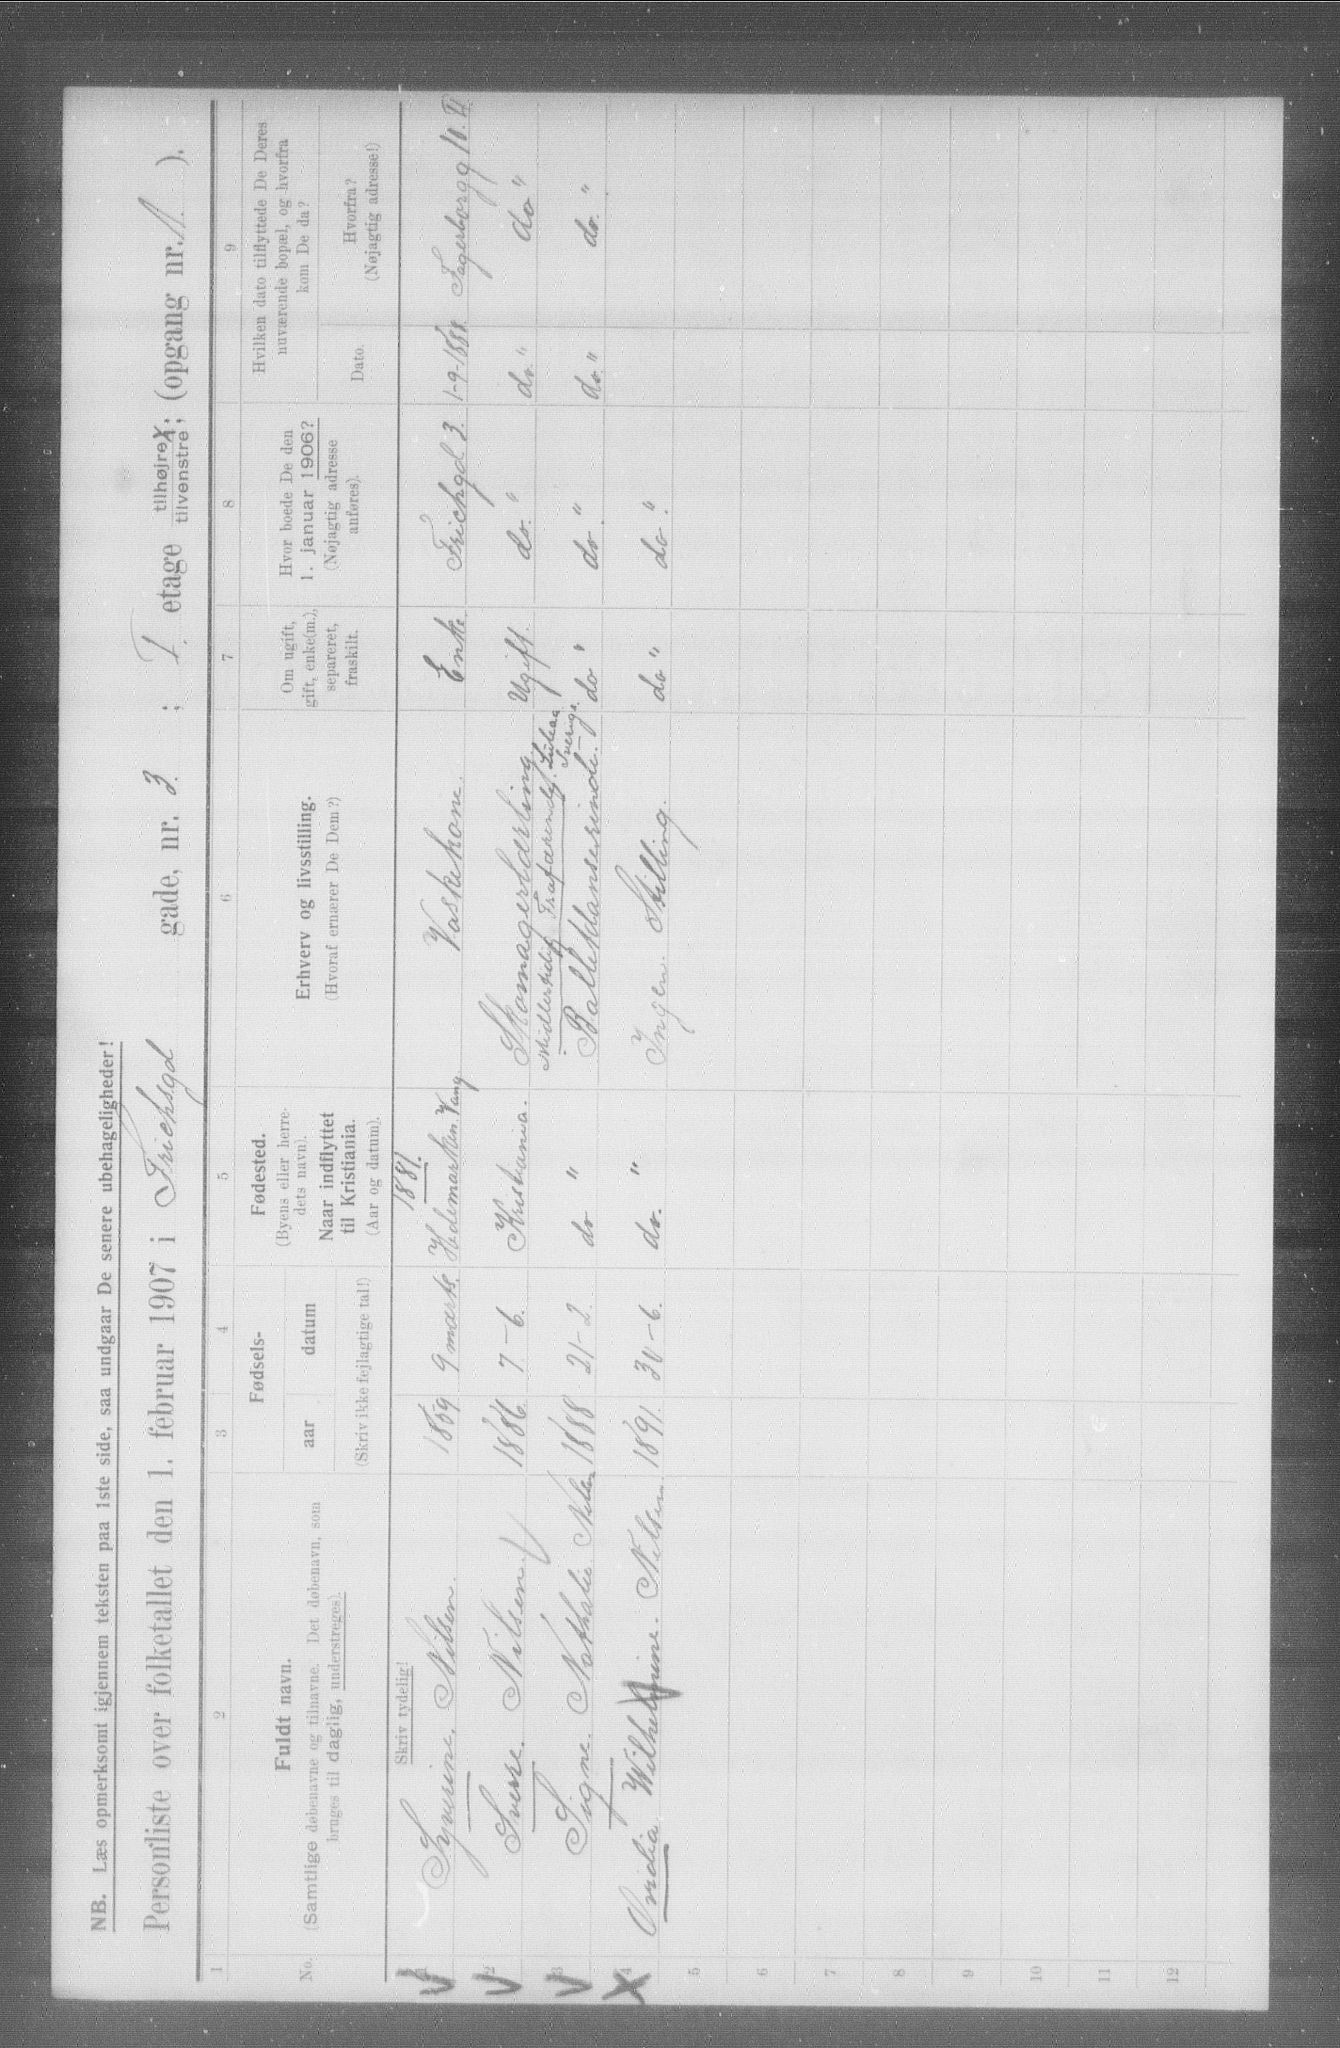 NB. Læs opmerksomt igjennem teksten paa 1ste side, saa undgaar De senere ubehageligheder!
Personliste over folketallet den 1. februar 1907 i Frichsgd gade, nr. 3 ; I. etage tilhøjre X; tilvenstre; (opgang nr. ).
1 2 3 4 5 6 7 8 9
No.
Fuldt navn.
(Samtlige døbenavne og tilnavne. Det døbenavn, som
bruges til daglig, understreges).
Fødsels-
aar datum
(Skriv ikke fejlagtige tal!)
Fødested.
(Byens eller herre-
dets navn).
Naar indflyttet
til Kristiania.
(Aar og datum).
Erhverv og livsstilling.
(Hvoraf ernærer De Dem?)
Om ugift,
gift, enke(m.),
separeret,
fraskilt.
Hvor boede De den
1. januar 1906?
(Nøjagtig adresse
anføres).
Hvilken dato tilflyttede De Deres
nuværende bopæl, og hvorfra
kom De da?
Dato.
Hvorfra?
(Nøjagtig adresse!)
Skriv tydelig!
1881.
1 Syverine. Nilsen. 1859 9 marts. Hedemarken. Vang. Vaskekone. Enke. Frichgd 3. 1-9-1888. Fagerborgg 10. II
2 Sverre. Nilsen. 1886. 7-6. Kristiania. Skomagerlærling. Ugift. do. " do. " do "
Midlertidig Fraværende. Luleaa
Sverige.
3 Signe. Nathalie Nilsen 1888 21-2. do " Balletdanserinde. do " do " do. " do. "
4 Ovidia Wilhelmine. Nilsen. 1891. 30-6. do. " Ingen. Stilling. do " do "
5
6
7
8
9
10
11
12